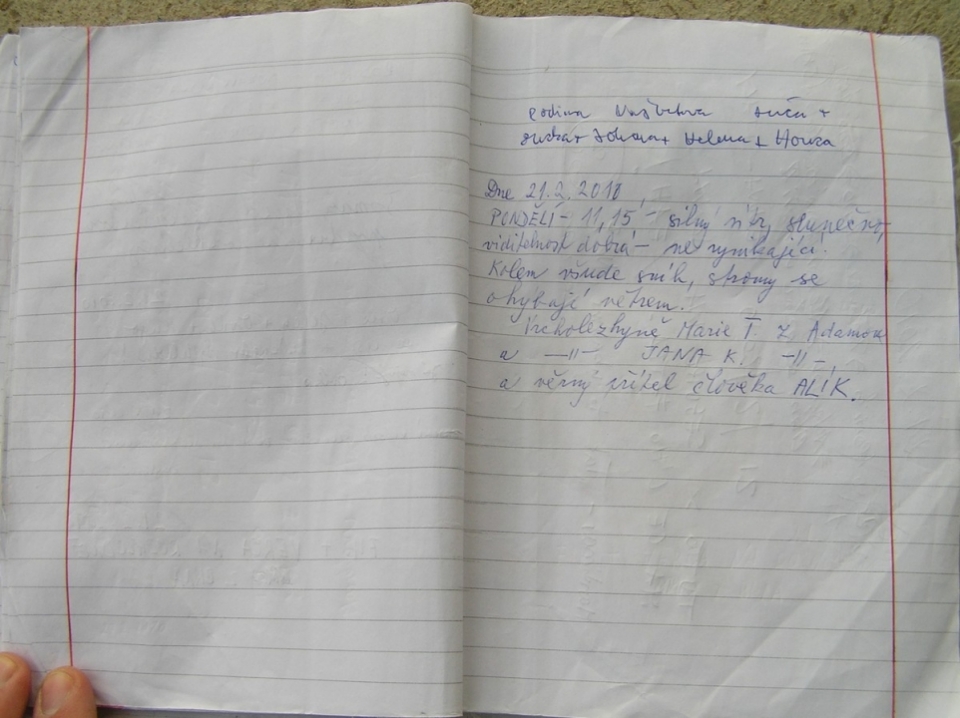 rodina
Helena + Honza
Dne 21.2.2018
PONDĚLÍ - 11,15 - silný vítr, slunečno,
viditelnost dobrá - ne vynikající.
Kolem všude sníh, stromy se
ohýbají větrem.
Vrcholezkyně Marie T z Adamova
a —||— JANA K. —||—
a věrný přítel člověka ALÍK.